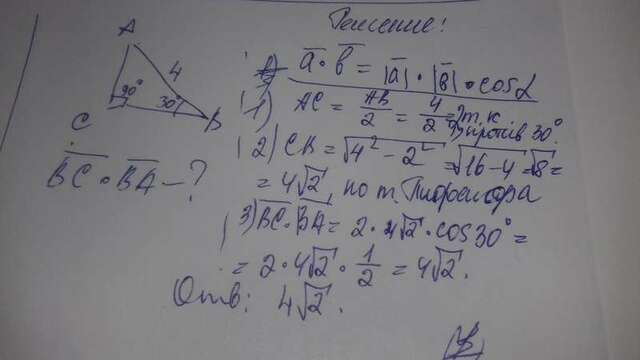 Решение:
A
4
90° 30°
C B
BC · BA — ?
a · b = |a| · |b| · cos α
1) AC = AB/2 = 4/2 = 2, т. к
против 30°.
2) CB = √4² - 2² = √16 - 4 = √8 =
= 4√2, по т. Пифагора
3) BC · BA = 2 · 4√2 · cos 30° =
= 2 · 4√2 · 1/2 = 4√2.
Отв: 4√2.